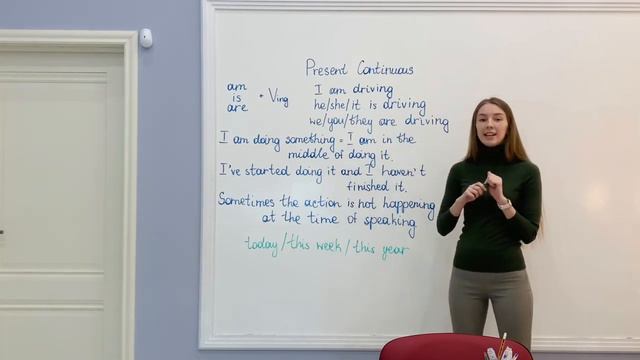 Present Continuous
am
is
are
+ Ving
I am driving
he/she/it is driving
we/you/they are driving
I am doing something = I am in the
middle of doing it.
I've started doing it and I haven't
finished it.
Sometimes the action is not happening
at the time of speaking
today/this week/this year